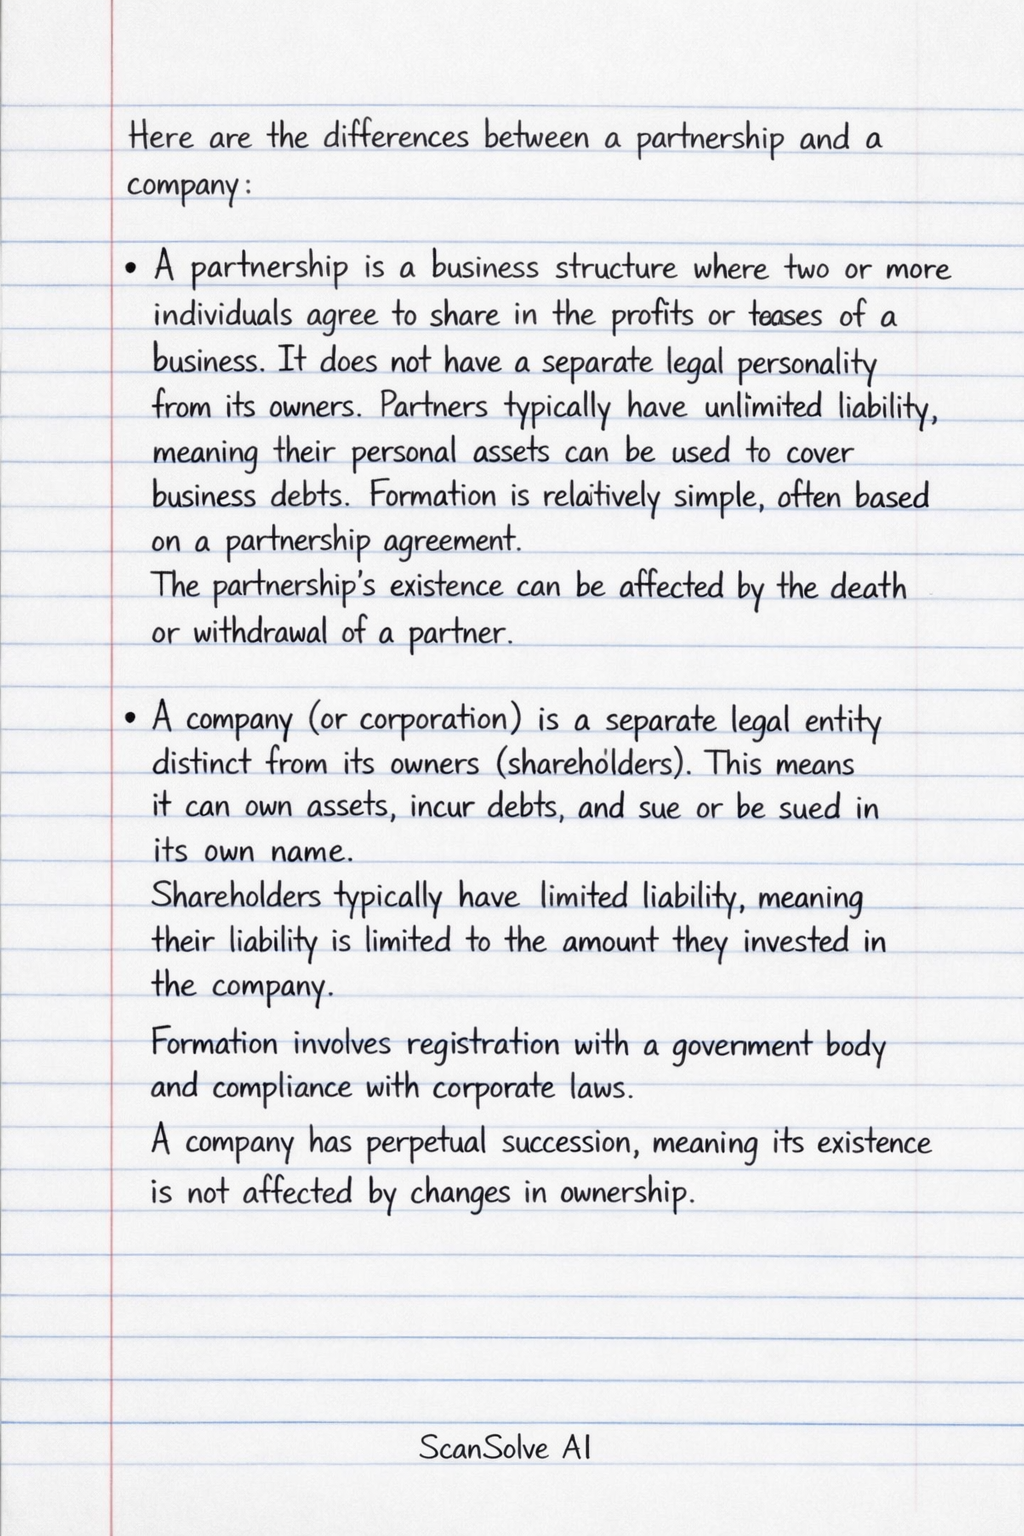 Here are the differences between a partnership and a
company:
• A partnership is a business structure where two or more
individuals agree to share in the profits or teases of a
business. It does not have a separate legal personality
from its owners. Partners typically have unlimited liability,
meaning their personal assets can be used to cover
business debts. Formation is relaitively simple, often based
on a partnership agreement.
The partnership's existence can be affected by the death
or withdrawal of a partner.
• A company (or corporation) is a separate legal entity
distinct from its owners (shareholders). This means
it can own assets, incur debts, and sue or be sued in
its own name.
Shareholders typically have limited liability, meaning
their liability is limited to the amount they invested in
the company.
Formation involves registration with a government body
and compliance with corporate laws.
A company has perpetual succession, meaning its existence
is not affected by changes in ownership.
ScanSolve AI